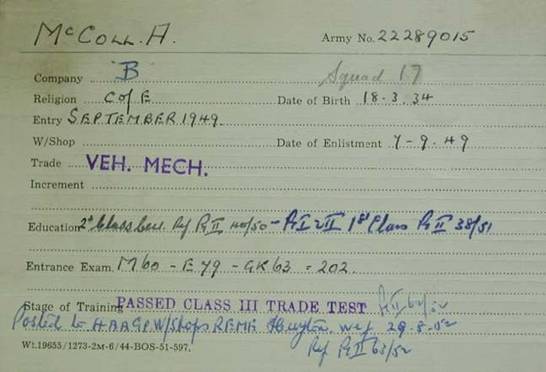 McCOLL. A. Army No. 22289015
Company B Squad 17
Religion C of E Date of Birth 18.3.34
Entry SEPTEMBER 1949.
W/Shop Date of Enlistment 7-9-49
Trade VEH. MECH.
Increment
Education 2nd Class Cert. Ref Pt II 40/50 - A I & II 1st Class Pt II 38/51
Entrance Exam. M60 - E 79 - GK 63 = 202.
Stage of Training PASSED CLASS III TRADE TEST Pt II 62/52
Posted to HAAGP W/Shops REME Huyton. wef 29-8-52
Ref Pt II 63/52
Wt.19655/1273-2M-6/44-BOS-51-597.